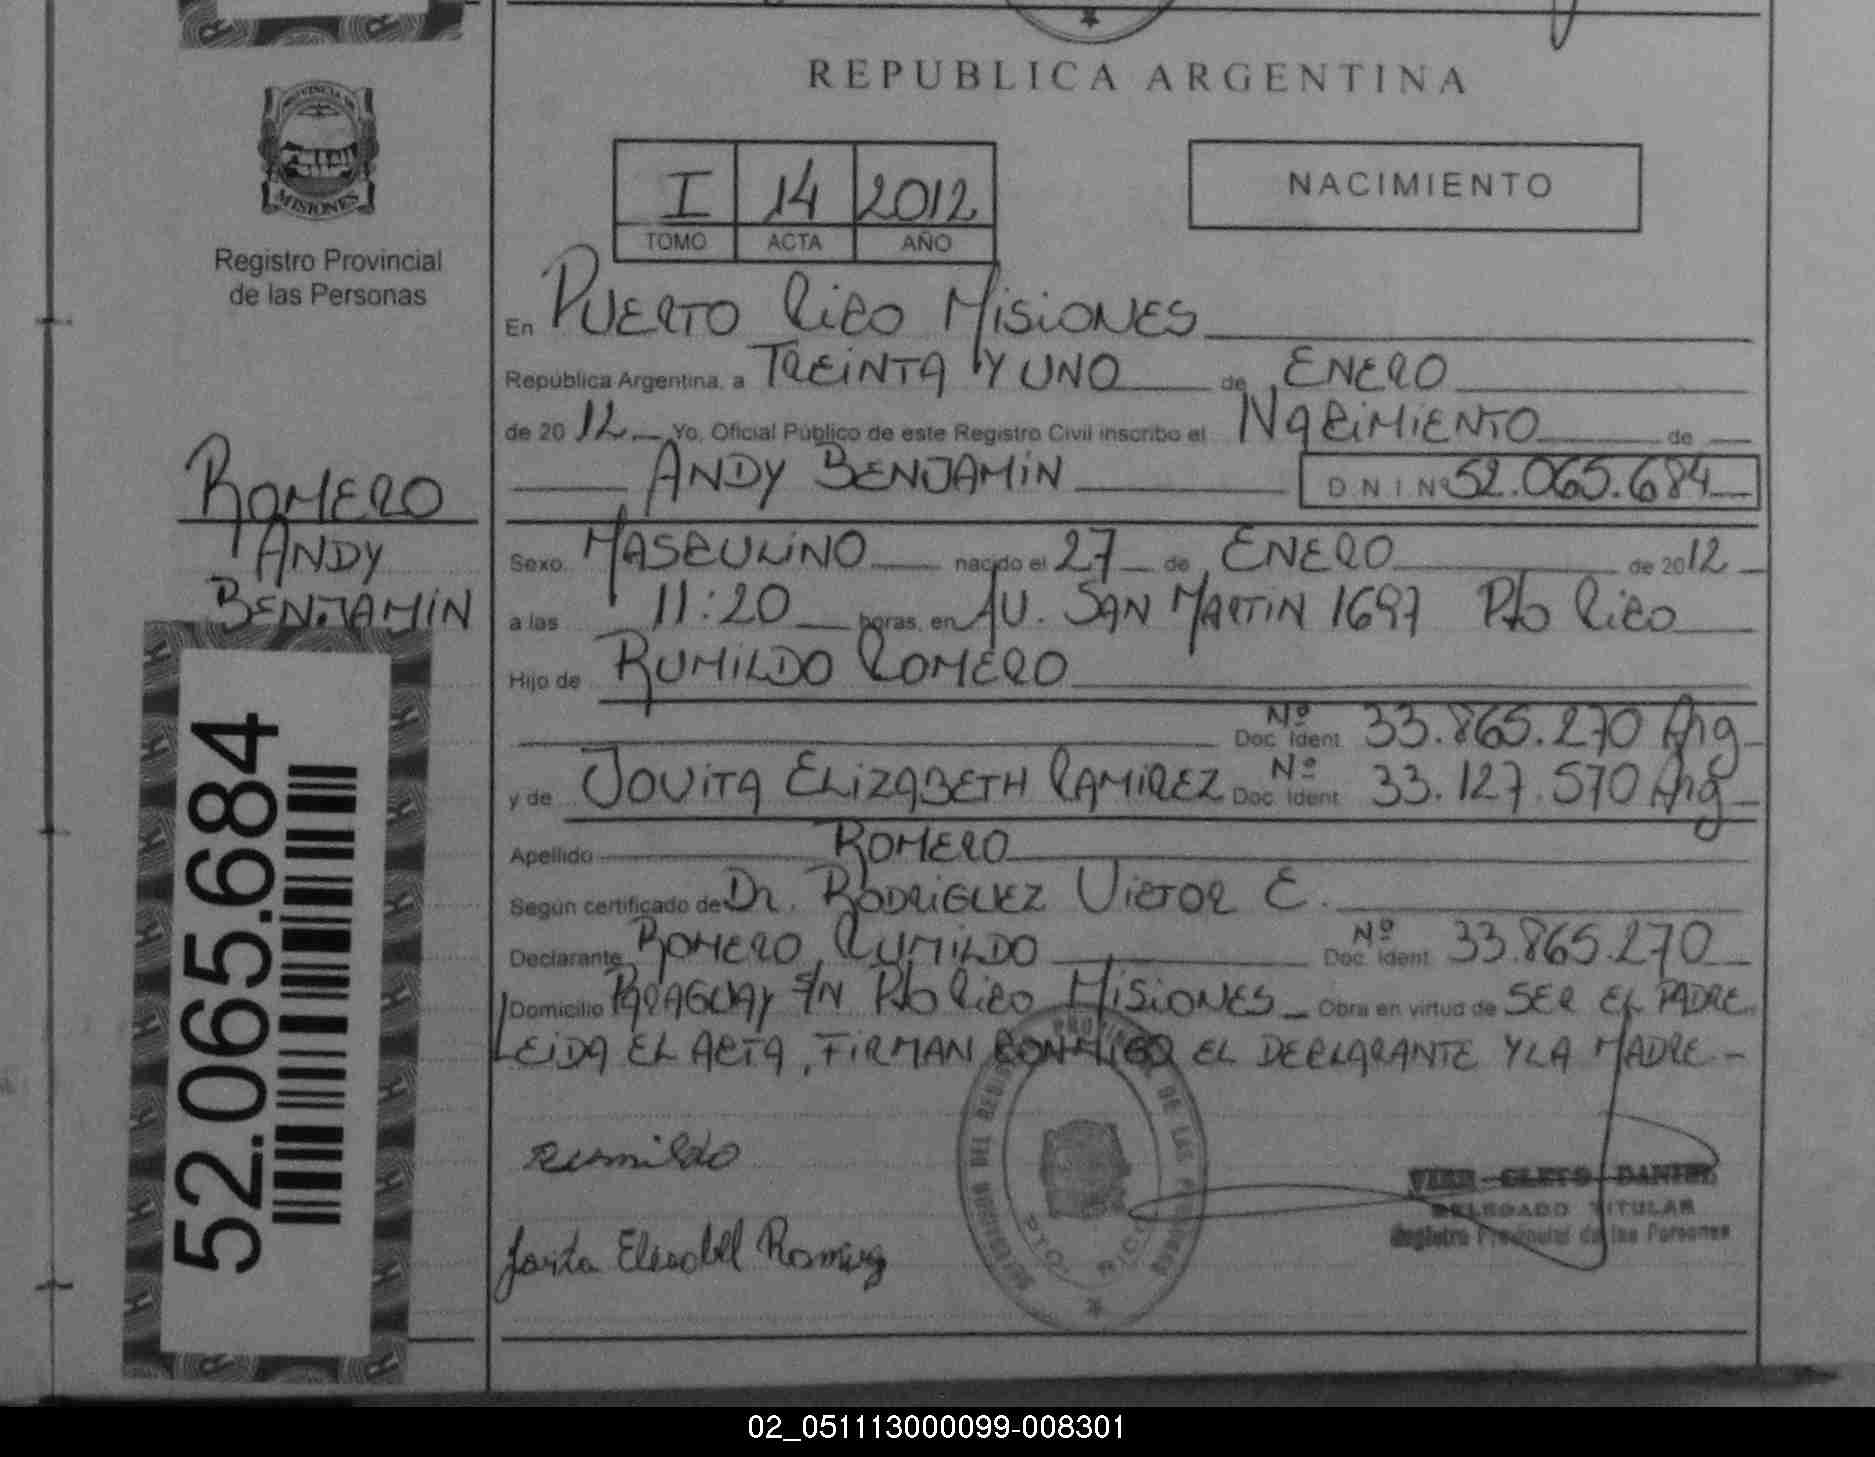 REPUBLICA ARGENTINA
PROVINCIA DE
MISIONES
Registro Provincial
de las Personas
ROMERO
ANDY
BENJAMIN
52.065.684
I 14 2012
TOMO ACTA AÑO
NACIMIENTO
En PUERTO RICO MISIONES
República Argentina, a TREINTA Y UNO de ENERO
de 2012 Yo, Oficial Público de este Registro Civil inscribo el NACIMIENTO de
ANDY BENJAMIN D.N.I. Nº 52.065.684
Sexo MASCULINO nacido el 27 de ENERO de 2012
a las 11:20 horas, en AV. SAN MARTIN 1697 Pto RICO
Hijo de RUMILDO ROMERO
Nº Doc. Ident. 33.865.270 Arg
y de JOVITA ELIZABETH RAMIREZ Nº Doc. Ident. 33.127.570 Arg
Apellido ROMERO
Según certificado de Dr. RODRIGUEZ VICTOR E.
Declarante ROMERO RUMILDO Nº Doc. Ident. 33.865.270
Domicilio PARAGUAY S/N Pto RICO MISIONES Obra en virtud de SER EL PADRE
LEIDA EL ACTA, FIRMAN CONMIGO EL DECLARANTE Y LA MADRE
Rumildo
DEL REGISTRO PROVINCIAL DE LAS PERSONAS
PTO. RICO
DANIEL
DELEGADO TITULAR
Registro Provincial de las Personas
02_051113000099-008301